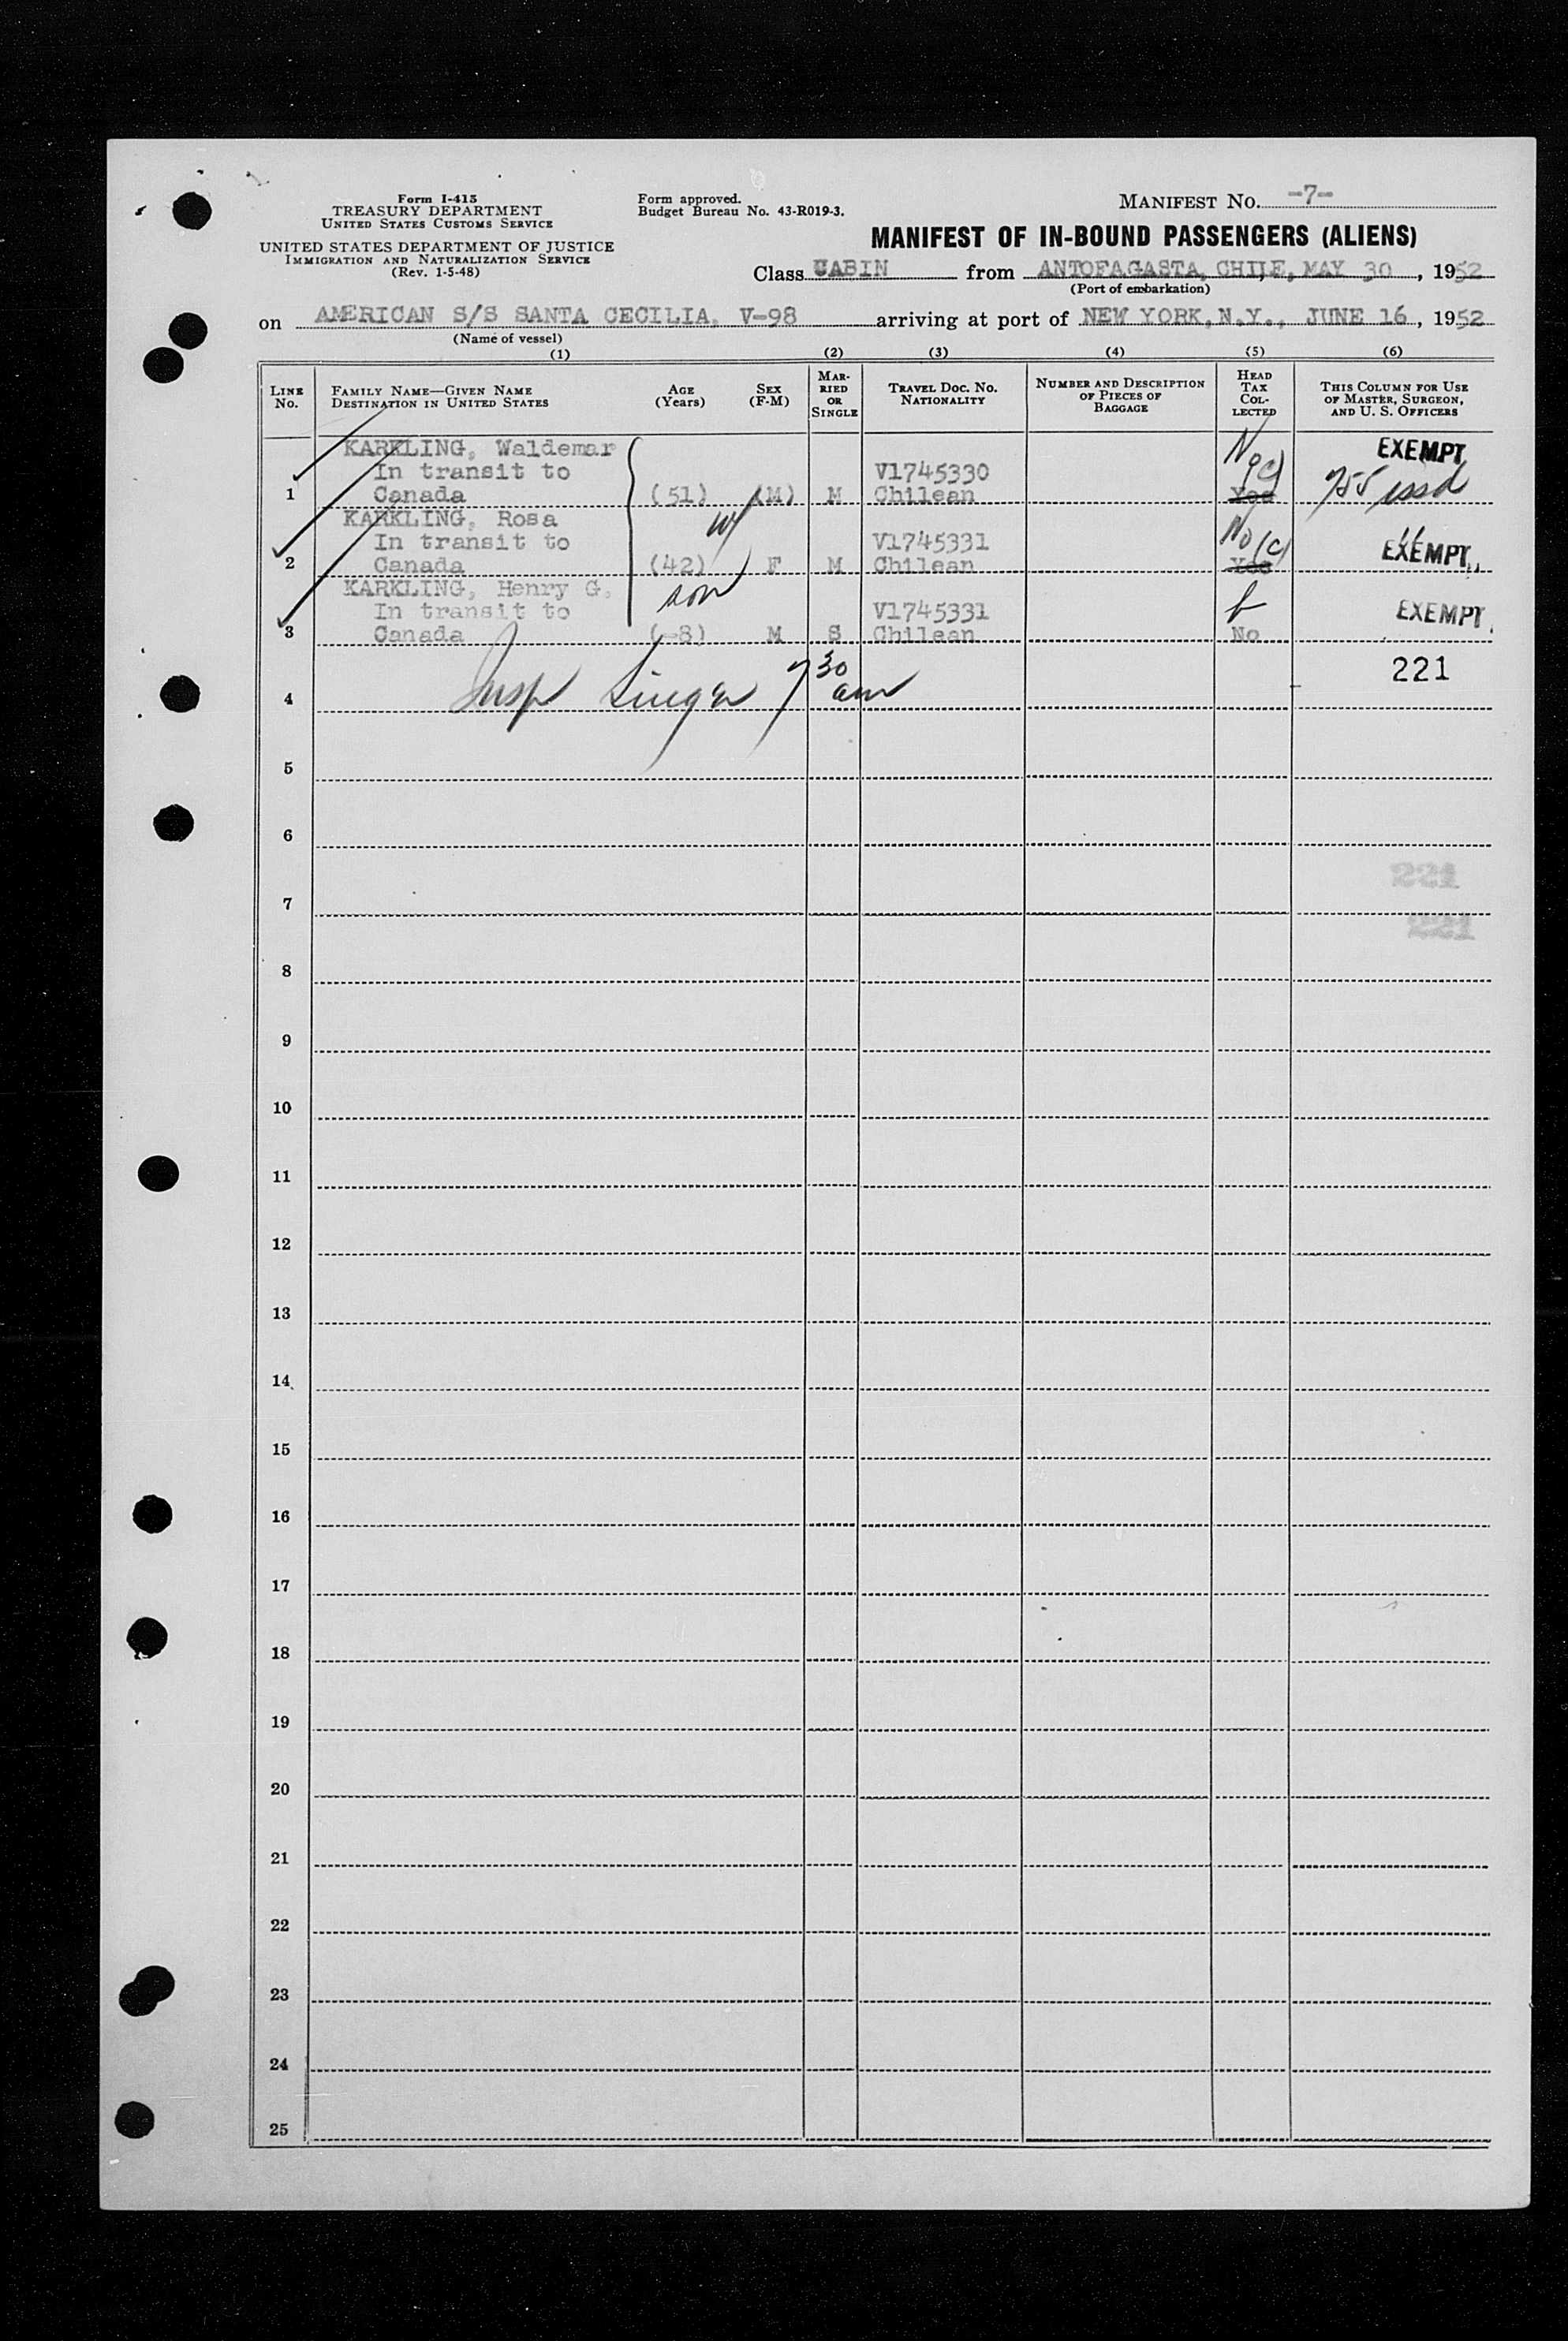 Form I-415
TREASURY DEPARTMENT
UNITED STATES CUSTOMS SERVICE
UNITED STATES DEPARTMENT OF JUSTICE
IMMIGRATION AND NATURALIZATION SERVICE
(Rev. 1-5-48)
Form approved.
Budget Bureau No. 43-R019-3.
MANIFEST NO. -7-
MANIFEST OF IN-BOUND PASSENGERS (ALIENS)
Class CABIN from ANTOFAGASTA, CHILE, MAY 30, 1952
(Port of embarkation)
on AMERICAN S/S SANTA CECILIA, V-98 arriving at port of NEW YORK, N.Y., JUNE 16, 1952
(Name of vessel)
(1) (2) (3) (4) (5) (6)
LINE No.
FAMILY NAME—GIVEN NAME DESTINATION IN UNITED STATES
AGE (Years)
SEX (F-M)
MARRIED OR SINGLE
TRAVEL DOC. NO. NATIONALITY
NUMBER AND DESCRIPTION OF PIECES OF BAGGAGE
HEAD TAX COLLECTED
THIS COLUMN FOR USE OF MASTER, SURGEON, AND U. S. OFFICERS
KARKLING, Waldemar No EXEMPT
In transit to V1745330 (c) 755 issd
1 Canada (51) (M) M Chilean Yes
KARKLING, Rosa w/ No (c)
In transit to V1745331 " EXEMPT
2 Canada (42) F M Chilean Yes
KARKLING, Henry G. son
In transit to V1745331 EXEMPT
3 Canada (-8) M S Chilean No
221
4 Insp Singer 7 30 am
5
6
221
7
221
8
9
10
11
12
13
14
15
16
17
18
19
20
21
22
23
24
25